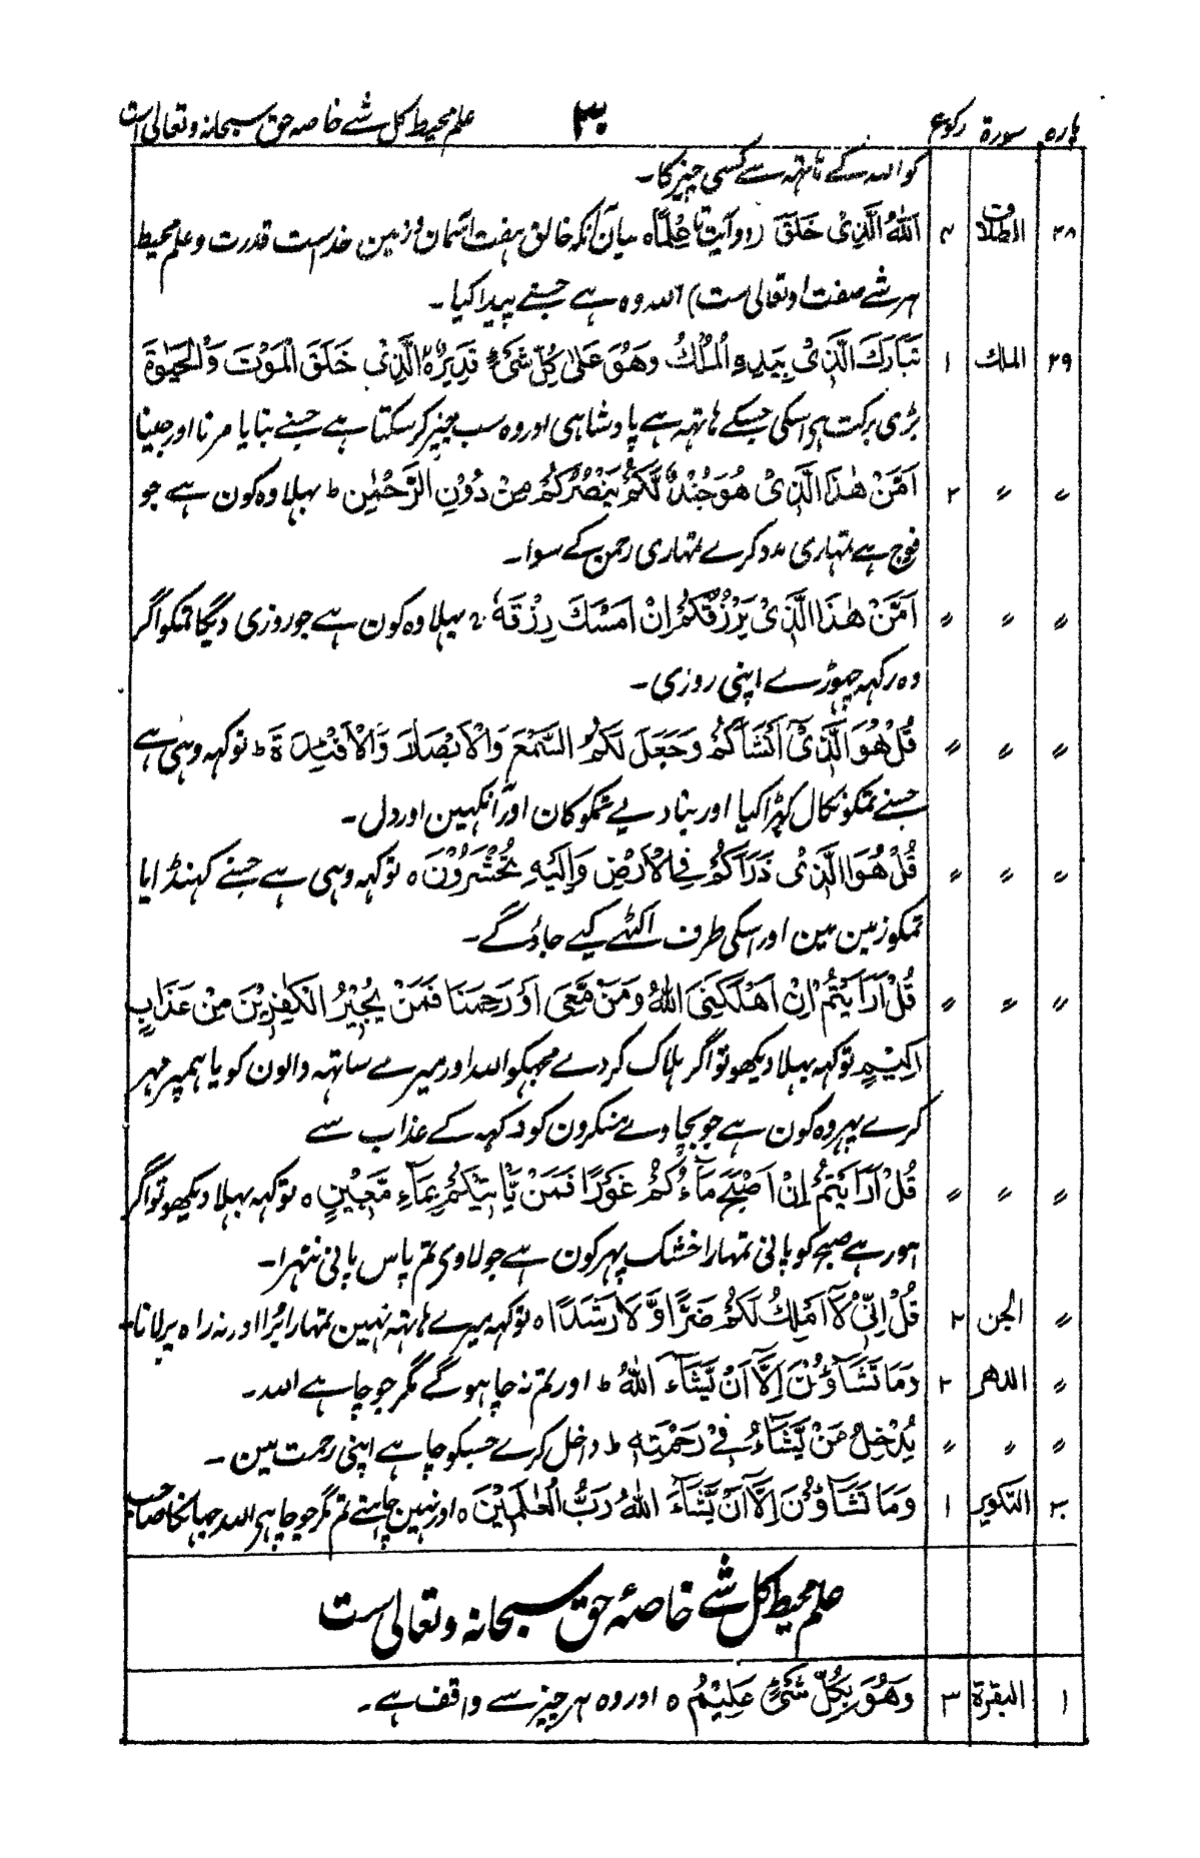 پارہ سورة رکوع ۳۰ علم محیط کل شے خاصہ حق سبحانہ و تعالی است
کو اللہ کے ہاتہہ سے کسی چیز کا۔
۲۸ الطلاق ۲ اَللّٰهُ الَّذِیْ خَلَقَ (دو آیت تا عِلْمًا ہ بیان آنکہ خالق ہفت آسمان و زمین خداست قدرت و علم محیط
ہر شے صفت او تعالی است) اللہ وہ ہے جسنے پیدا کیا۔
۲۹ الملك ۱ تَبَارَكَ الَّذِیْ بِیَدِهِ الْمُلْكُ وَهُوَ عَلٰی كُلِّ شَیْءٍ قَدِیْرُ ۨ ہ الَّذِیْ خَلَقَ الْمَوْتَ وَالْحَیٰوةَ
بڑی برکت ہی اسکی جسکے ہاتہہ ہے پادشاہی اور وہ سب چیز کر سکتا ہے جسنے بنایا مرنا اور جینا
〃 〃 ۲ اَمَّنْ هٰذَا الَّذِیْ هُوَ جُنْدٌ لَّكُمْ یَنْصُرُكُمْ مِنْ دُوْنِ الرَّحْمٰنِ ط بہلا وہ کون ہے جو
فوج ہے تمہاری مدد کرے تمہاری رحمن کے سوا۔
〃 〃 〃 اَمَّنْ هٰذَا الَّذِیْ یَرْزُقُكُمْ اِنْ اَمْسَكَ رِزْقَهٗ ج بہلا وہ کون ہے جو روزی دیگا تمکو اگر
وہ رکہہ چہوڑے اپنی روزی۔
〃 〃 〃 قُلْ هُوَ الَّذِیْ اَنْشَاَكُمْ وَجَعَلَ لَكُمُ السَّمْعَ وَالْاَبْصَارَ وَالْاَفْئِدَةَ ط تو کہہ وہی ہے
جسنے تمکو نکال کہڑا کیا اور بنا دیے تمکو کان اور آنکہین اور دل۔
〃 〃 〃 قُلْ هُوَ الَّذِیْ ذَرَاَكُمْ فِی الْاَرْضِ وَاِلَیْهِ تُحْشَرُوْنَ ہ تو کہہ وہی ہے جسنے کہنڈایا
تمکو زمین مین اور اسکی طرف اکٹہے کیے جاؤگے۔
〃 〃 〃 قُلْ اَرَاَیْتُمْ اِنْ اَهْلَكَنِیَ اللّٰهُ وَمَنْ مَّعِیَ اَوْ رَحِمَنَا فَمَنْ یُّجِیْرُ الْكٰفِرِیْنَ مِنْ عَذَابٍ
اَلِیْمٍ تو کہہ بہلا دیکہو تو اگر ہلاک کر دے مجہکو اللہ اور میرے ساتہہ والون کو یا ہمپر مہر
کرے پہر وہ کون ہے جو بچاوے منکرون کو دکہہ کے عذاب سے
〃 〃 〃 قُلْ اَرَاَیْتُمْ اِنْ اَصْبَحَ مَآؤُكُمْ غَوْرًا فَمَنْ یَّاْتِیْكُمْ بِمَآءٍ مَّعِیْنٍ ہ تو کہہ بہلا دیکہو تو اگر
ہو رہے صبح کو پانی تمہارا خشک پہر کون ہے جو لاوی تم پاس پانی نتہرا۔
〃 الجن ۲ قُلْ اِنِّیْ لَآ اَمْلِكُ لَكُمْ ضَرًّا وَّلَا رَشَدًا ہ تو کہہ میرے ہاتہہ نہین تمہارا بُرا اور نہ راہ پر لانا
〃 الدهر ۲ وَمَا تَشَآؤُنَ اِلَّآ اَنْ یَّشَآءَ اللّٰهُ ط اور تم نہ چاہوگے مگر جو چاہے اللہ۔
〃 〃 〃 یُدْخِلُ مَنْ یَّشَآءُ فِیْ رَحْمَتِهٖ ط داخل کرے جسکو چاہے اپنی رحمت مین۔
۳۰ التكوير ۱ وَمَا تَشَآؤُنَ اِلَّآ اَنْ یَّشَآءَ اللّٰهُ رَبُّ الْعٰلَمِیْنَ ہ اور نہین چاہتے تم مگر جو چاہی اللہ جہانکا صاحب
علم محیط کل شے خاصۂ حق سبحانہ و تعالی است
۱ البقرة ۳ وَهُوَ بِكُلِّ شَیْءٍ عَلِیْمٌ ہ اور وہ ہر چیز سے واقف ہے۔